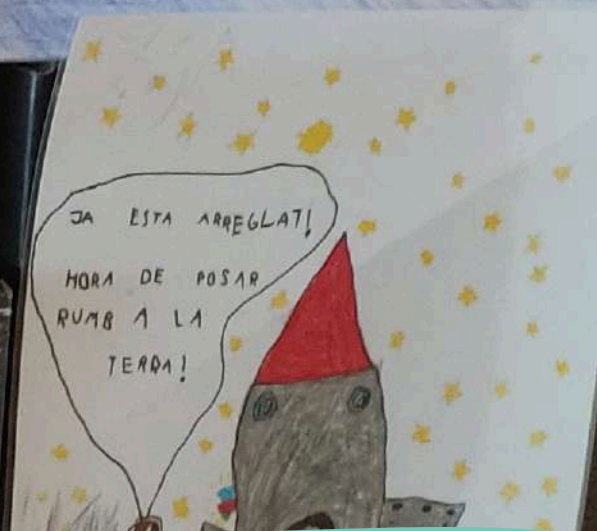 JA ESTA ARREGLAT!
HORA DE POSAR
RUMB A LA
TERRA!